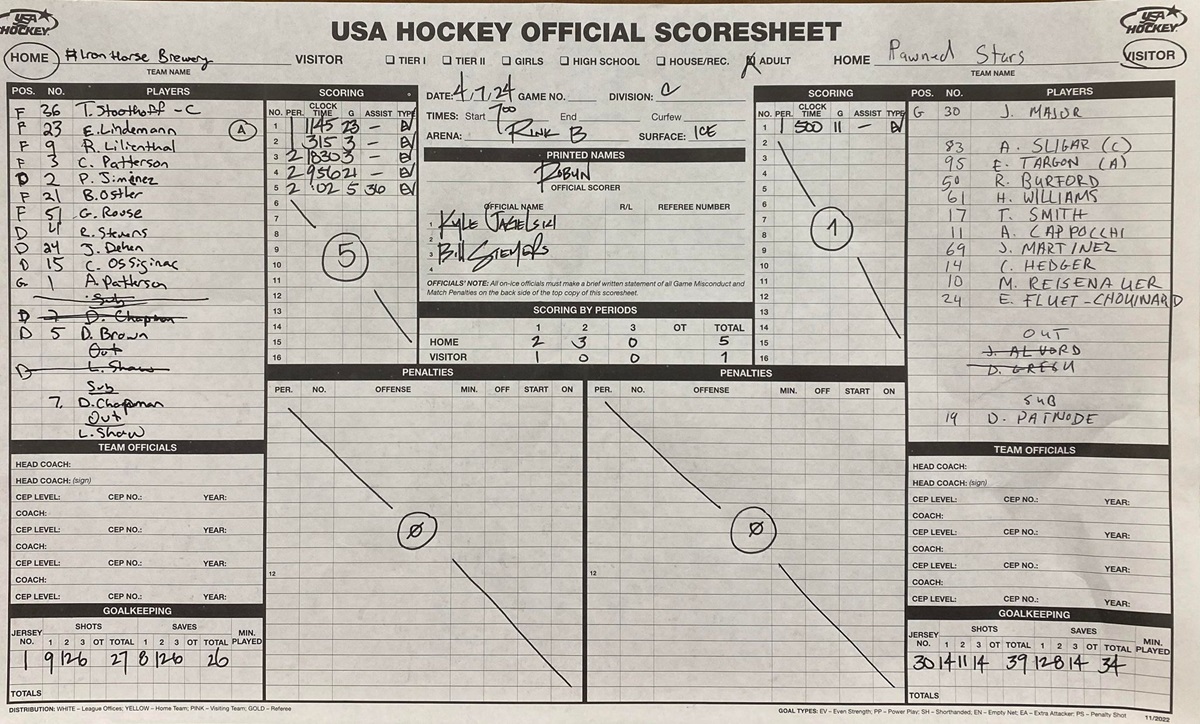 USA HOCKEY
USA HOCKEY OFFICIAL SCORESHEET
USA HOCKEY
HOME #Iron Horse Brewery VISITOR
TEAM NAME
☐ TIER I ☐ TIER II ☐ GIRLS ☐ HIGH SCHOOL ☐ HOUSE/REC. ☒ ADULT
HOME Pawned Stars VISITOR
TEAM NAME
POS. NO. PLAYERS
F 36 T. Stoothoff - C
F 23 E. Lindemann A
F 9 R. Lilienthal
F 3 C. Patterson
D 2 P. Jiménez
F 21 B. Osther
F 51 G. Rouse
D 4 R. Stevens
D 24 J. Dehen
D 15 C. Ossiginac
G 1 A. Patterson
Sub
D 7 D. Chapman
D 5 D. Brown
Out
D L. Shaw
Sub
7. D. Chapman
Out
L. Shaw
TEAM OFFICIALS
HEAD COACH:
HEAD COACH: (sign)
CEP LEVEL: CEP NO.: YEAR:
COACH:
CEP LEVEL: CEP NO.: YEAR:
COACH:
CEP LEVEL: CEP NO.: YEAR:
COACH:
CEP LEVEL: CEP NO.: YEAR:
GOALKEEPING
JERSEY NO. SHOTS SAVES MIN. PLAYED
1 2 3 OT TOTAL 1 2 3 OT TOTAL
1 9 12 6 27 8 12 6 26
TOTALS
SCORING
NO. PER. CLOCK TIME G ASSIST TYPE
1 1 1145 23 – EV
2 1 315 3 – EV
3 2 1830 3 – EV
4 2 956 21 – EV
5 2 :02 5 36 EV
6
7
8
9
10
11
12
13
14
15
16
5
DATE: 4/7/24 GAME NO. DIVISION: C
TIMES: Start 700 End Curfew
ARENA: RINK B SURFACE: ICE
PRINTED NAMES
ROBYN
OFFICIAL SCORER
OFFICIAL NAME R/L REFEREE NUMBER
1 KYLE
2
3 BILL
4
OFFICIALS' NOTE: All on-ice officials must make a brief written statement of all Game Misconduct and
Match Penalties on the back side of the top copy of this scoresheet.
SCORING BY PERIODS
1 2 3 OT TOTAL
HOME 2 3 0 5
VISITOR 1 0 0 1
SCORING
NO. PER. CLOCK TIME G ASSIST TYPE
1 1 500 11 – EV
2
3
4
5
6
7
8
9
10
11
12
13
14
15
16
1
PENALTIES
PER. NO. OFFENSE MIN. OFF START ON
12
Ø
PENALTIES
PER. NO. OFFENSE MIN. OFF START ON
12
Ø
POS. NO. PLAYERS
G 30 J. MAJOR
83 A. SLIGAR (C)
95 E. TARGON (A)
50 R. BURFORD
61 H. WILLIAMS
17 T. SMITH
11 A. CAPPOCCHI
69 J. MARTINEZ
14 C. HEDGER
10 M. REISENAUER
24 E. FLUET-CHOUINARD
OUT
J. ALVORD
D. GREGN
SUB
19 D. PATNODE
TEAM OFFICIALS
HEAD COACH:
HEAD COACH: (sign)
CEP LEVEL: CEP NO.: YEAR:
COACH:
CEP LEVEL: CEP NO.: YEAR:
COACH:
CEP LEVEL: CEP NO.: YEAR:
COACH:
CEP LEVEL: CEP NO.: YEAR:
GOALKEEPING
JERSEY NO. SHOTS SAVES MIN. PLAYED
1 2 3 OT TOTAL 1 2 3 OT TOTAL
30 14 11 14 39 12 8 14 34
TOTALS
DISTRIBUTION: WHITE – League Offices; YELLOW – Home Team; PINK – Visiting Team; GOLD – Referee
GOAL TYPES: EV – Even Strength; PP – Power Play; SH – Shorthanded, EN – Empty Net; EA – Extra Attacker; PS – Penalty Shot
11/2022